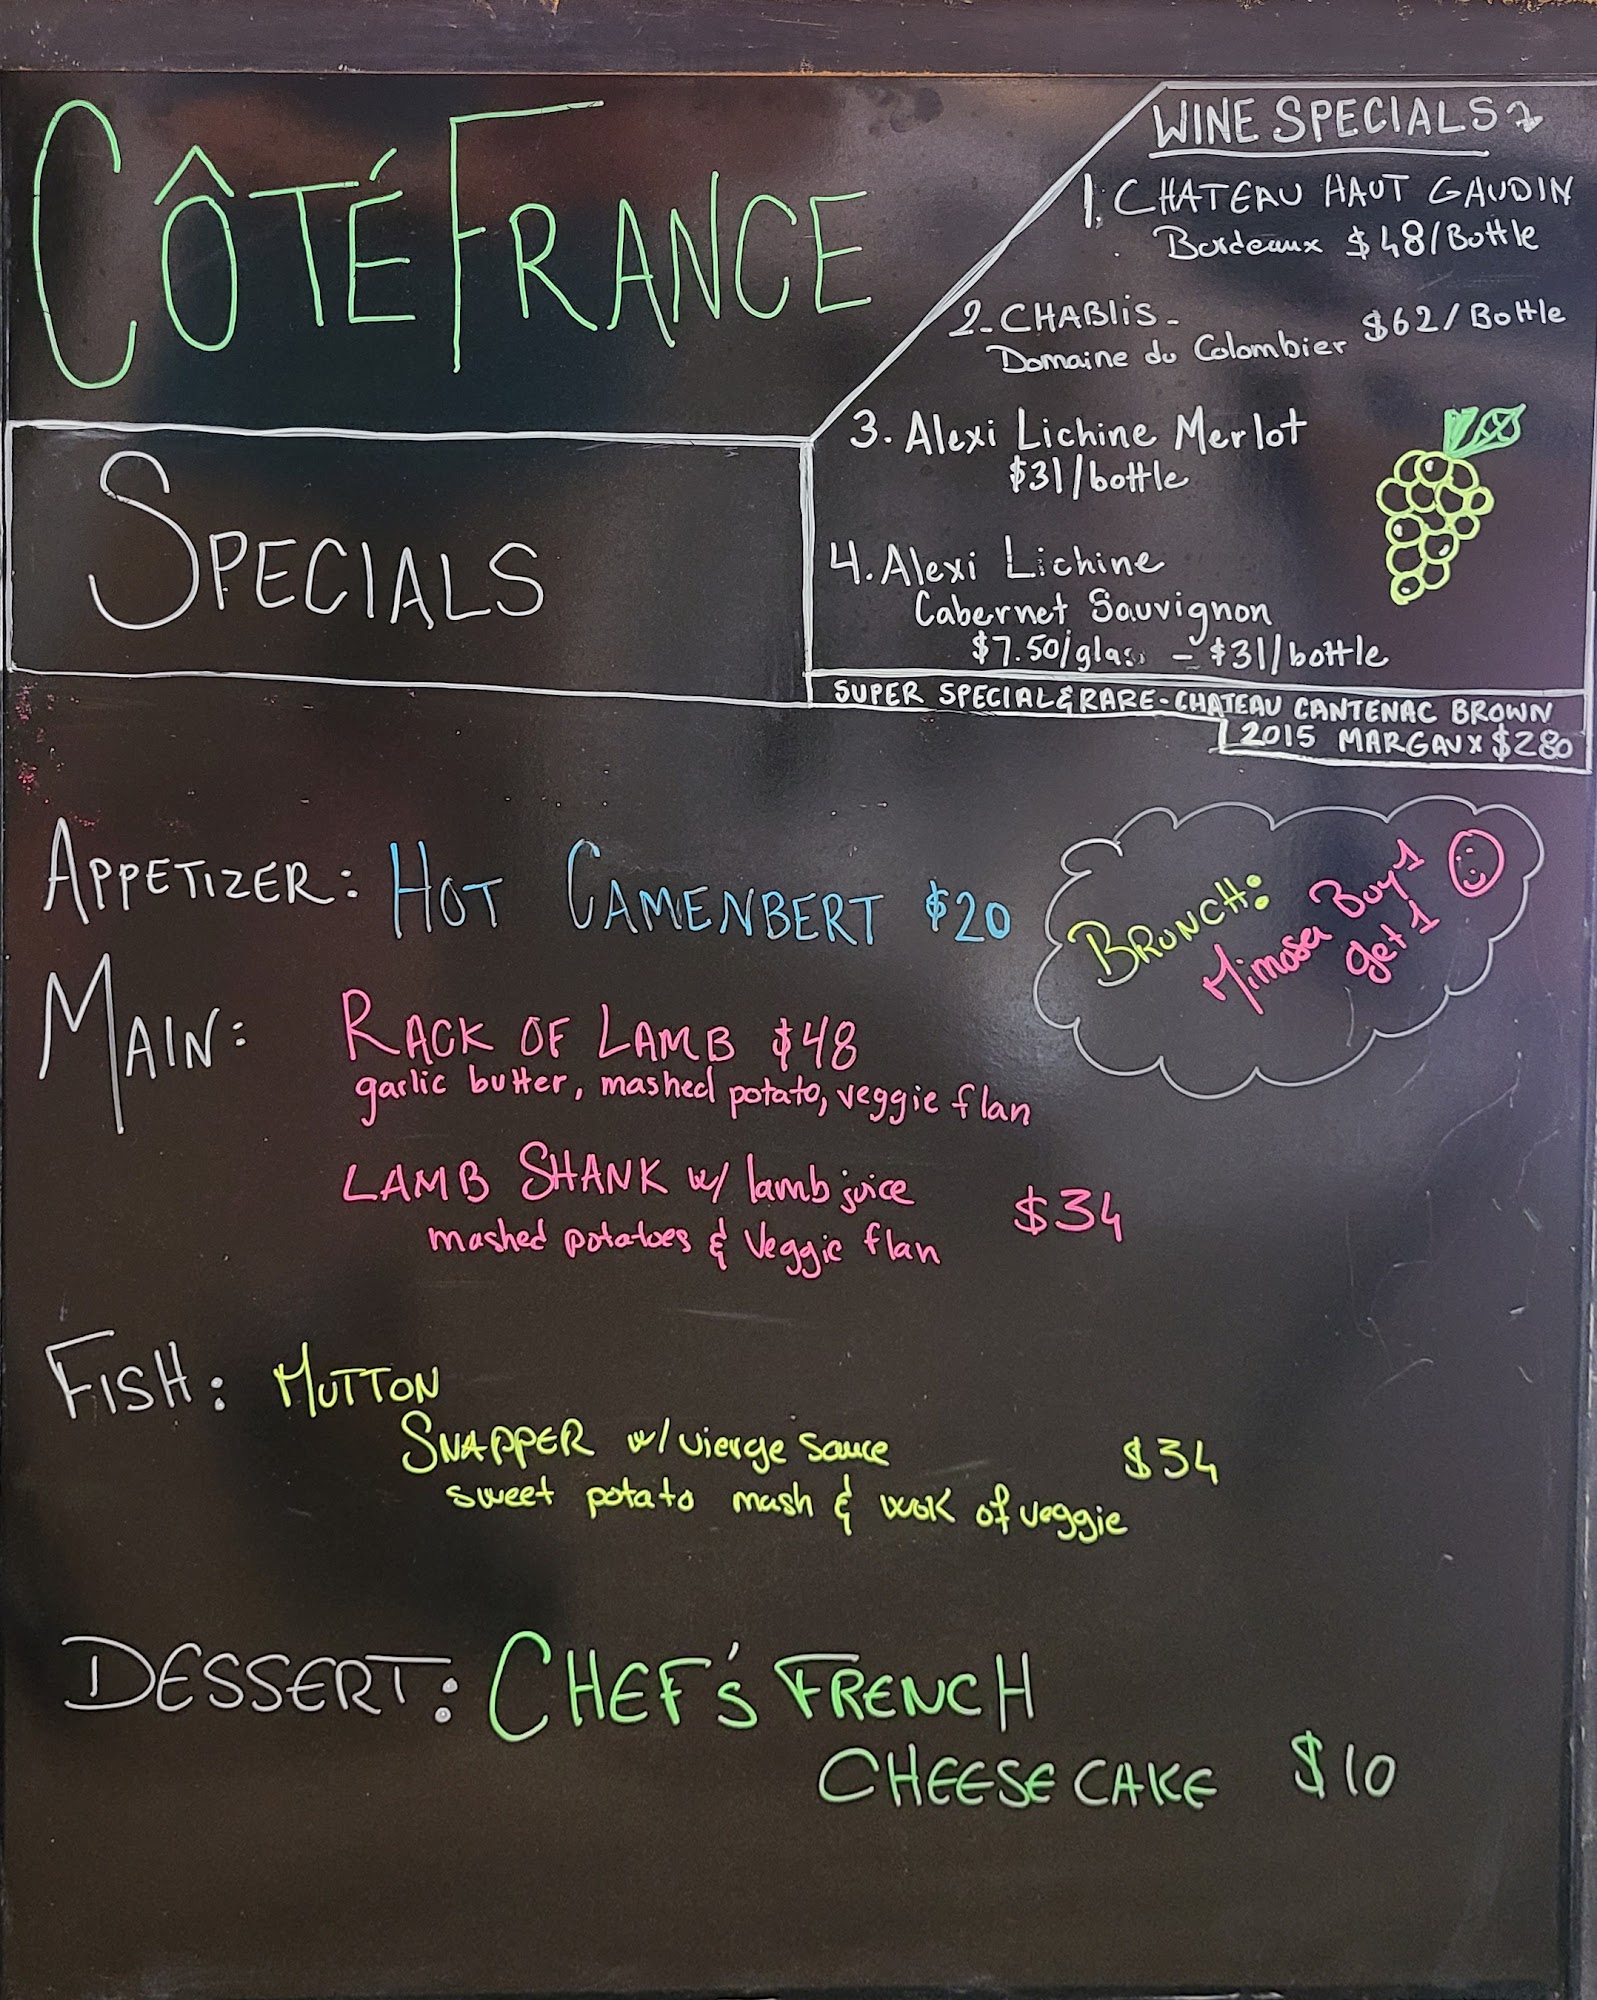 CÔTÉ FRANCE
SPECIALS
WINE SPECIALS
1. CHATEAU HAUT GAUDIN
Bordeaux $48/Bottle
2- CHABLIS - $62/Bottle
Domaine du Colombier
3. Alexi Lichine Merlot
$31/bottle
4. Alexi Lichine
Cabernet Sauvignon
$7.50/glass - $31/bottle
SUPER SPECIAL & RARE - CHATEAU CANTENAC BROWN
2015 MARGAUX $280
APPETIZER: HOT CAMENBERT $20
BRUNCH:
Mimosa Buy 1
get 1
MAIN: RACK OF LAMB $48
garlic butter, mashed potato, veggie flan
LAMB SHANK w/ lamb juice $34
mashed potatoes & Veggie flan
FISH: MUTTON
SNAPPER w/ vierge sauce $34
sweet potato mash & wok of veggie
DESSERT: CHEF'S FRENCH
CHEESE CAKE $10